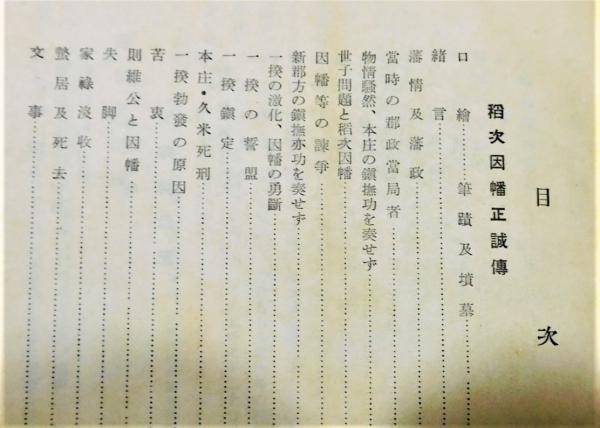 目次
稻次因幡正誠傳
口繪 筆蹟及墳墓
緖言
藩情及藩政
當時の郡政當局者
物情騷然、本庄の鎭撫功を奏せず
世子問題と稻次因幡
因幡等の諫爭
新郡方の鎭撫亦功を奏せず
一揆の激化、因幡の勇斷
一揆の誓盟
一揆鎭定
本庄・久米死刑
一揆勃發の原因
苦衷
則維公と因幡
失脚
家祿沒收
蟄居及死去
文事